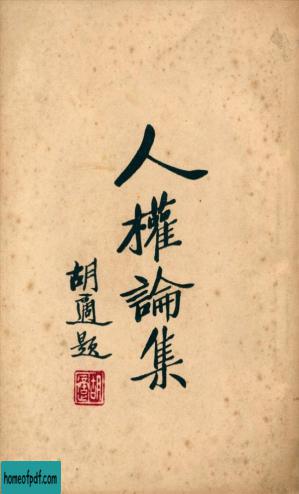 人權論集
胡適題
胡適
homeofpdf.com